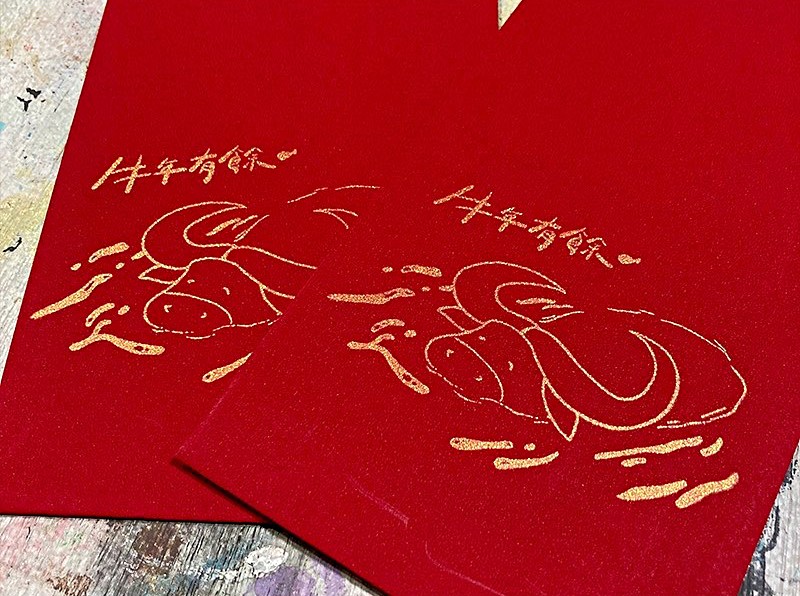 牛年有餘
牛年有餘